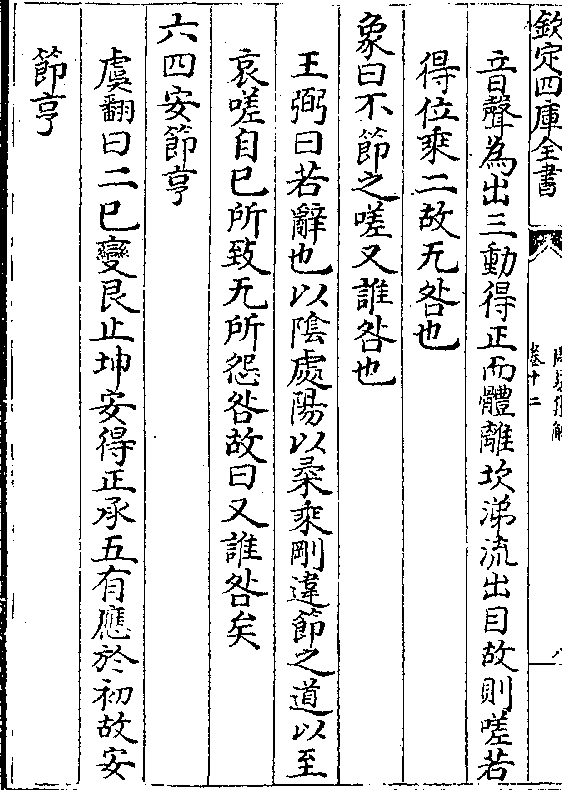 欽定四庫全書
卷十二
音聲為出三動得正而體離坎涕流出目故則嗟若
得位乘二故无咎也
象曰不節之嗟又誰咎也
王弼曰若辭也以陰處陽以柔乘剛違節之道以至
哀嗟自已所致无所怨咎故曰又誰咎矣
六四安節亨
虞翻曰二已變艮止坤安得正承五有應於初故安
節亨